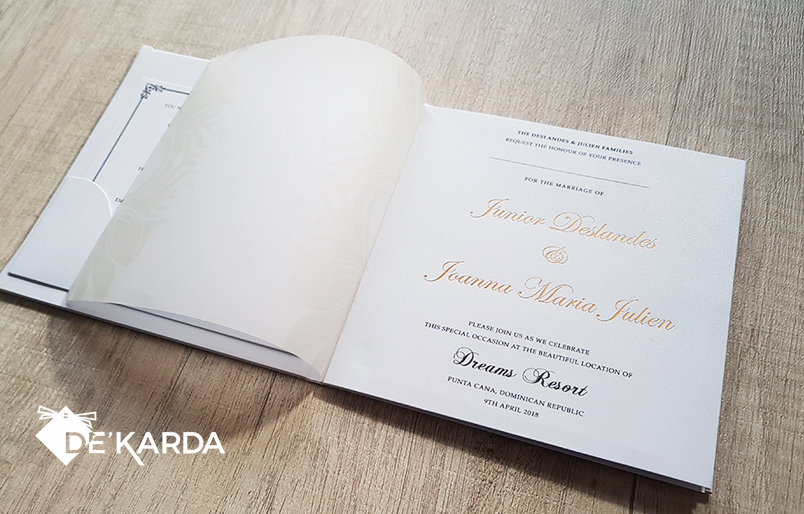 YOU W
EM
THE DESLANDES & JULIEN FAMILIES
REQUEST THE HONOUR OF YOUR PRESENCE
FOR THE MARRIAGE OF
Junior Deslandes
&
Joanna Maria Julien
PLEASE JOIN US AS WE CELEBRATE
THIS SPECIAL OCCASION AT THE BEAUTIFUL LOCATION OF
Dreams Resort
PUNTA CANA, DOMINICAN REPUBLIC
9TH APRIL 2018
DE'KARDA